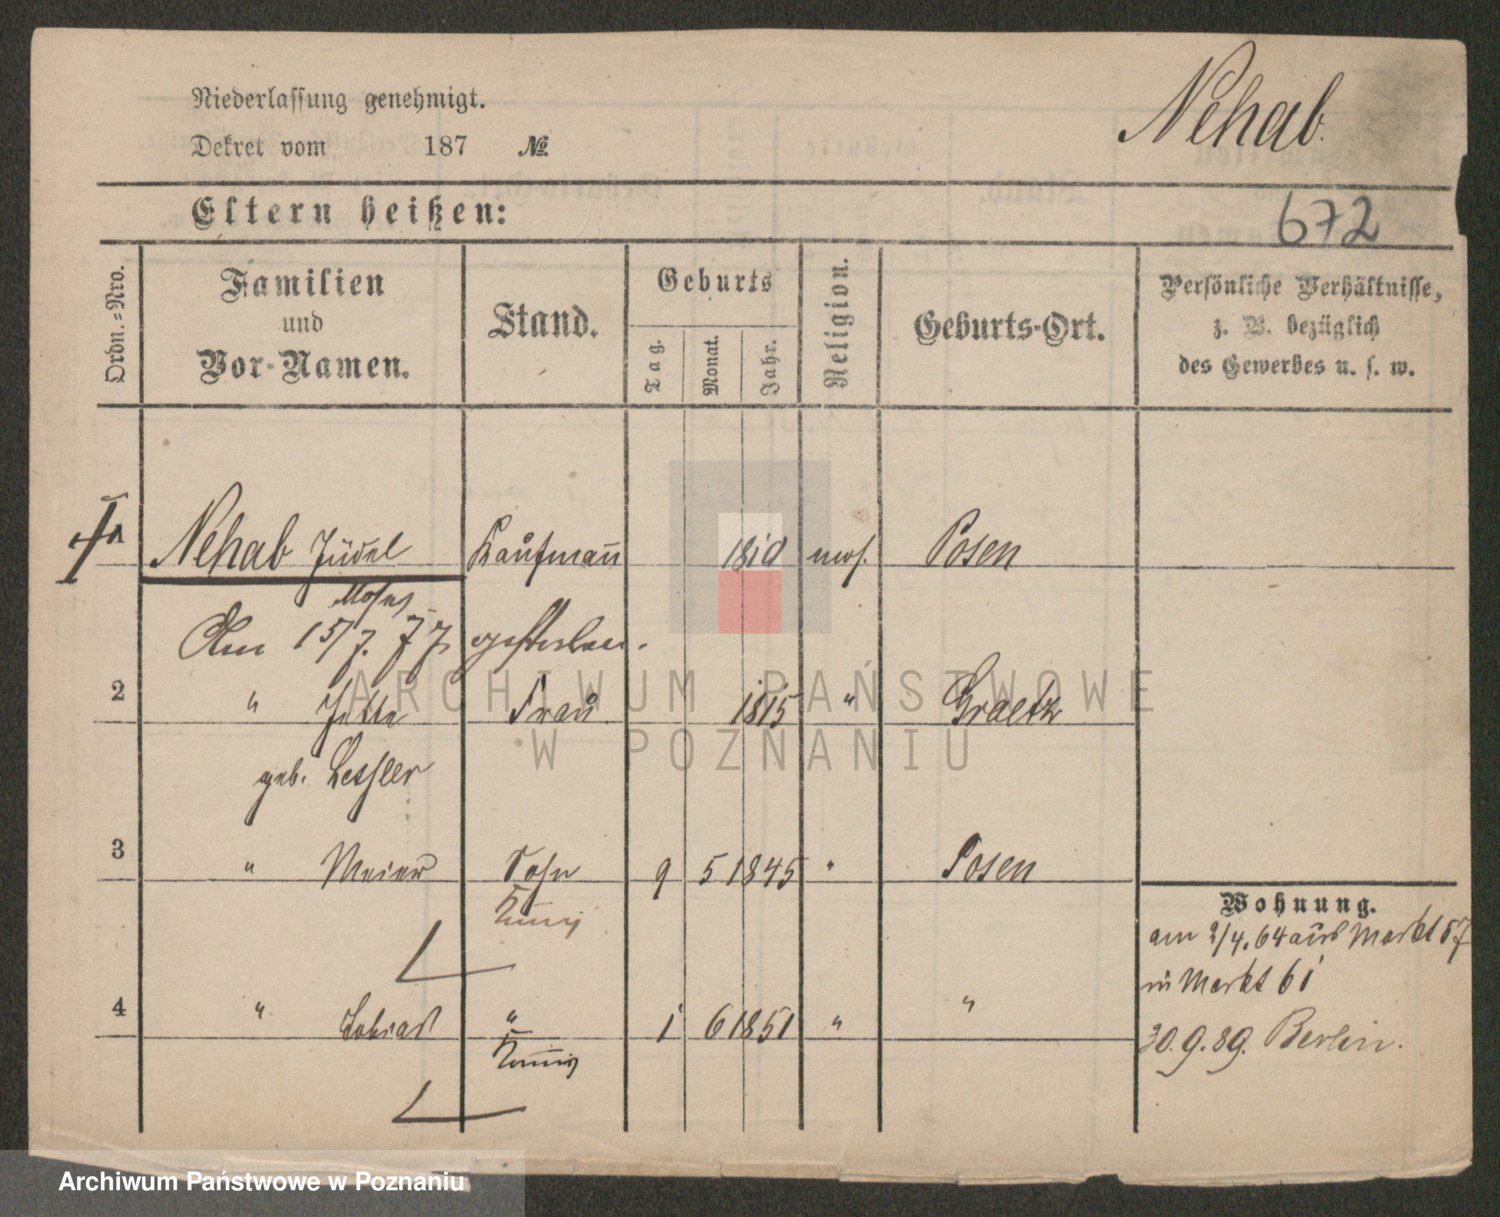 Niederlassung genehmigt.
Nehab.
Dekret vom 187 №
Eltern heißen:
672
Ordn.=Nro.
Familien
und
Vor-Namen.
Stand.
Geburts
Tag.
Monat.
Jahr.
Religion.
Geburts-Ort.
Persönliche Verhältnisse,
z. B. bezüglich
des Gewerbes u. s. w.
Nehab Jüdel Kaufmann 1810 mos. Posen
Moses
Am 15/7. 77 gestorben.
2 " Jette Frau 1815 " Graetz
geb.
3 " Meier Sohn 9 5 1845 " Posen
Wohnung.
am 2/4. 64 aus Markt 57
in Markt 61
4 " " 1 6 1851 " "
30.9.89. Berlin.
ARCHIWUM PAŃSTWOWE
W POZNANIU
Archiwum Państwowe w Poznaniu